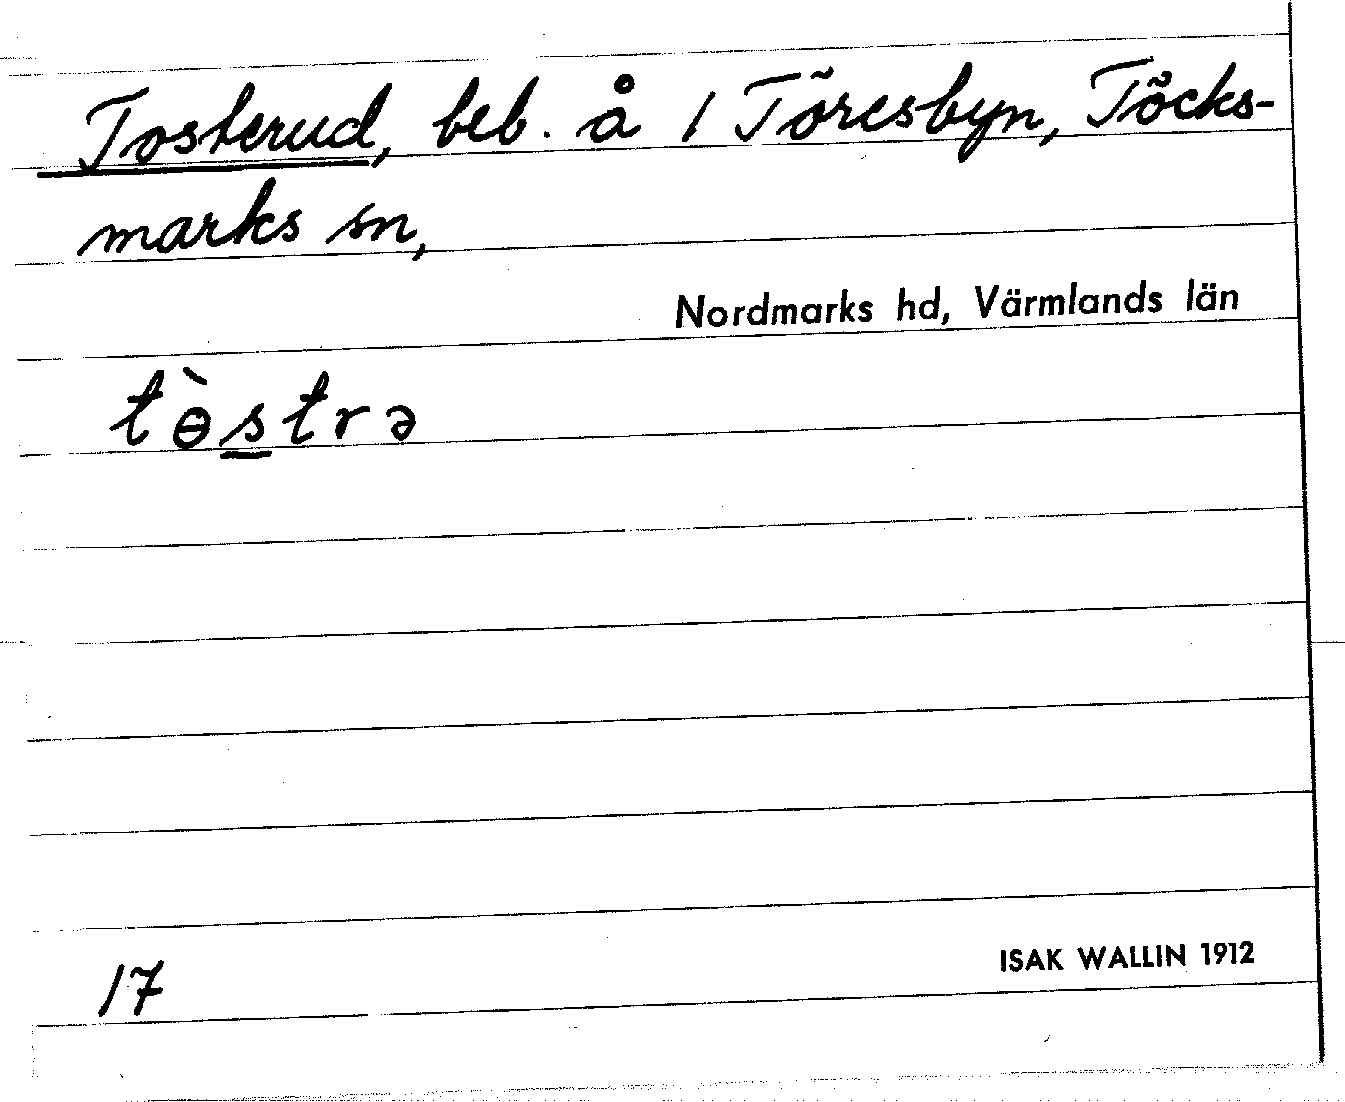 Tosterud, beb. å 1 Töresbyn, Töcks-
marks sn,
Nordmarks hd, Värmlands län
tɵ̀strə
17
ISAK WALLIN 1912